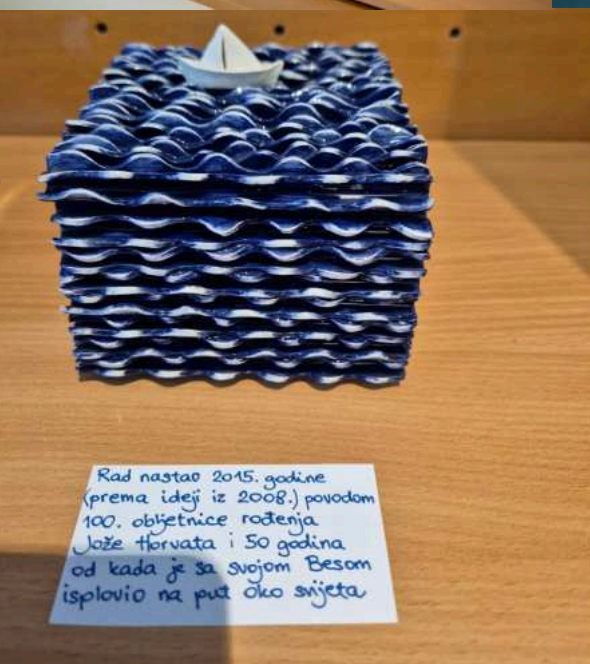 Rad nastao 2015. godine
(prema ideji iz 2008.) povodom
100. obljetnice rođenja
Jože Horvata i 50 godina
od kada je sa svojom Besom
isplovio na put oko svijeta